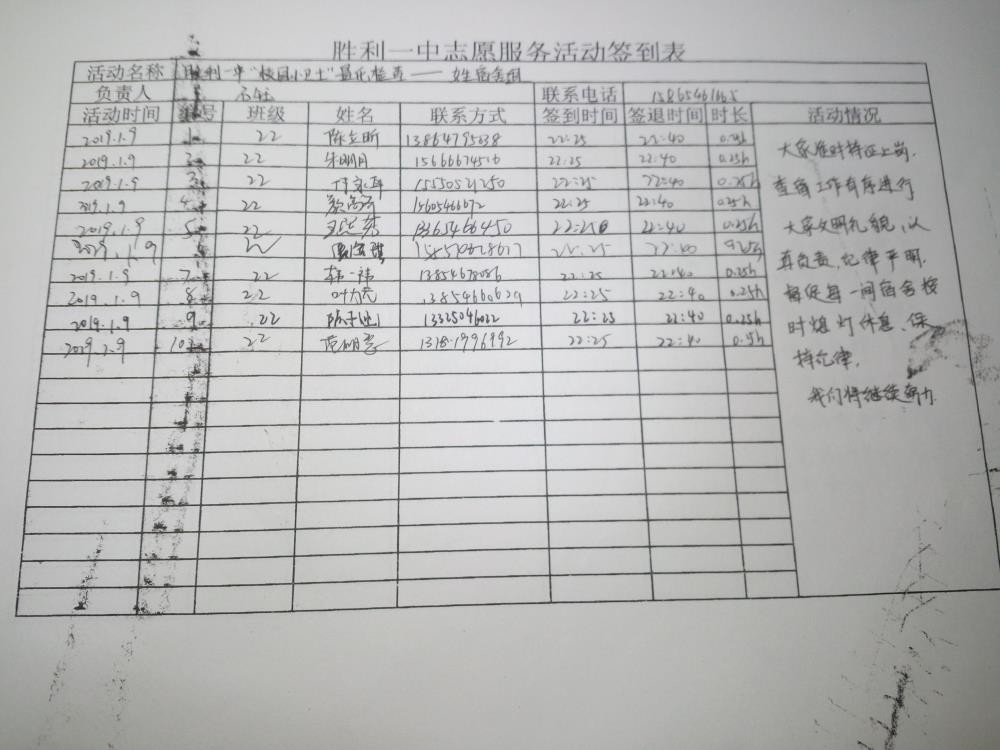 胜利一中志愿服务活动签到表
活动名称 胜利一中"校园小卫士"量化检查——女宿舍组
负责人 联系电话
活动时间 编号 班级 姓名 联系方式 签到时间 签退时间 时长 活动情况
2019.1.9 1 22 陈立昕 13864795038 22:25 22:40 0.25h
2019.1.9 2 22 朱明月 15666674516 22:25 22:40 0.25h
2019.1.9 3 22 15550521250 22:25 22:40 0.25h
2019.1.9 4 22 15605466672 22:25 22:40 0.25h
2019.1.9 5 22 22:25 22:40 0.25h
2019.1.9 6 22 22:25 22:40
2019.1.9 7 22 韩一祎 13854678086 22:25 22:40 0.25h
2019.1.9 8 22 13854660629 22:25 22:40 0.25h
2019.1.9 9 22 13325046022 22:25 22:40 0.25h
2019.1.9 10 22 22:25 22:40
大家准时持证上岗.
查宿工作有序进行
大家文明礼貌,认
真负责,纪律严明.
督促每一间宿舍按
时熄灯休息、保
持纪律.
我们将继续努力.